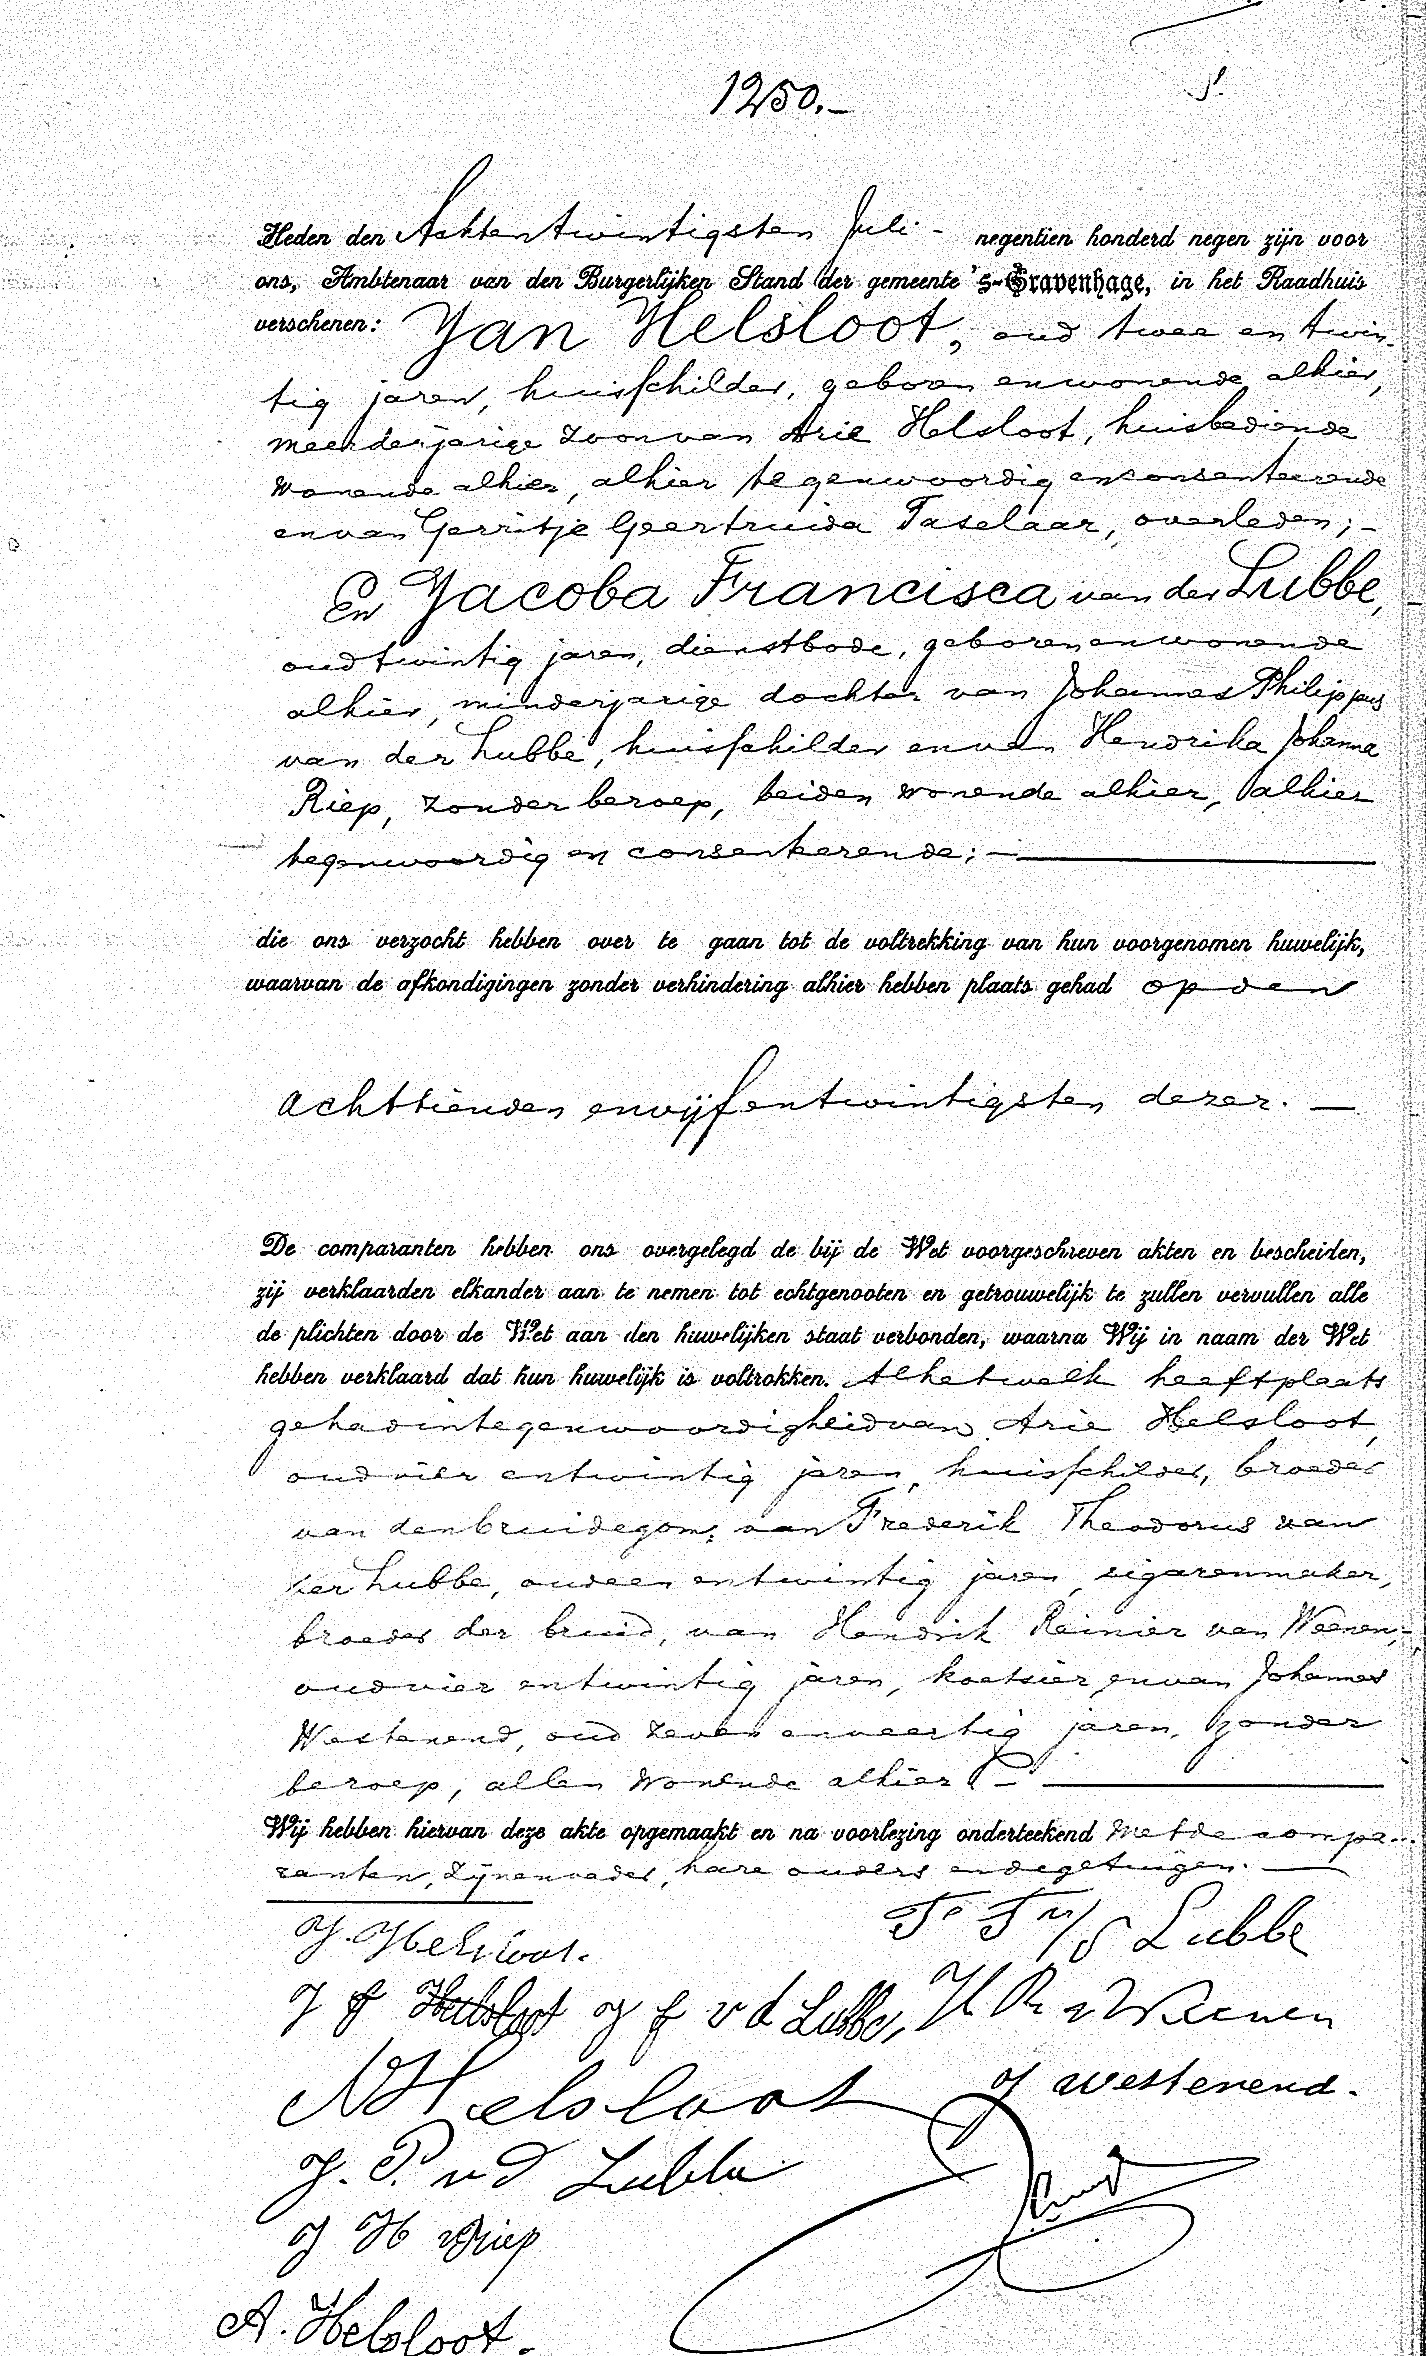 1250.-
Heden den Achtentwintigsten Juli - negentien honderd negen zijn voor
ons, Ambtenaar van den Burgerlijken Stand der gemeente 's-Gravenhage, in het Raadhuis
verschenen: Jan Helsloot, oud twee en twin-
tig jaren, huisschilder, geboren en wonende alhier,
meerderjarige zoon van Arie Helsloot, huisbediende
wonende alhier, alhier tegenwoordig en consenteerende
en van Gerritje Geertruida Taselaar, overleden; -
En Jacoba Francisca van der Lubbe,
oud twintig jaren, dienstbode, geboren en wonende
alhier, minderjarige dochter van Johannes Philippus
van der Lubbe, huisschilder en van Hendrika Johanna
Riep, zonder beroep, beiden wonende alhier, alhier
tegenwoordig en consenteerende; -
die ons verzocht hebben over te gaan tot de voltrekking van hun voorgenomen huwelijk,
waarvan de afkondigingen zonder verhindering alhier hebben plaats gehad op den
achttienden en vijfentwintigsten dezer. -
De comparanten hebben ons overgelegd de bij de Wet voorgeschreven akten en bescheiden,
zij verklaarden elkander aan te nemen tot echtgenooten en getrouwelijk te zullen vervullen alle
de plichten door de Wet aan den huwelijken staat verbonden, waarna Wij in naam der Wet
hebben verklaard dat hun huwelijk is voltrokken. Alhetwelk heeft plaats
gehad in tegenwoordigheid van Arie Helsloot,
oud vier entwintig jaren, huisschilder, broeder
van den bruidegom; van Frederik Theodorus van
der Lubbe, oud een entwintig jaren, sigarenmaker,
broeder der bruid, van Hendrik Reinier van Weenen,
oud vier entwintig jaren, koetsier, en van Johannes
Westenend, oud zeven enveertig jaren, zonder
beroep, allen wonende alhier. -
Wij hebben hiervan deze akte opgemaakt en na voorlezing onderteekend met de compa-
ranten, zijnen vader, hare ouders en de getuigen. -
J. Helsloot.
F. Th. v/d Lubbe
J F Helsloot J F v d Lubbe, H R v Weenen
A Helsloot
J Westenend.
J. P. v d Lubbe
J H Riep
A. Helsloot.